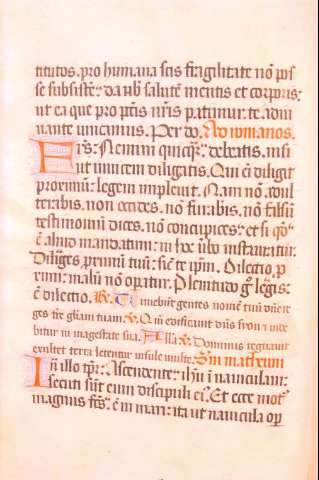 titutos. pro humana scis fragilitate nõ pos
se subsistẽ: da nob̃ salutẽ mentis et corporis:
ut ea que pro pctĩs nr̃is patimur. te adiu
uante uincamus. Per do. Ad romanos.
Frẽs: Nemini quicq̃: debeatis. nisi
ut inuicem diligatis. Qui ẽ diligit
proximũ: legem impleuit. Nam nõ adul
terabis. non occides. nõ furabis. nõ falsũ
testimoniũ dices. nõ concupices: et si qð
ẽ aliud mandatum: in hoc ũbo instauratur.
Diliges, proximũ tuũ: sic̃ te ip̃m. Dilectio, p
ximi: malũ nõ operatur. Plenitudo g̃ legis:
ẽ dilectio. Timebũt gentes nomẽ tuũ dñe et
ges tr̃e gl̃iam tuam. Qm̃ edificauit dñs syon et uide
bitur in magestate sua. Alla. Dominus regnauit
exultet terra letentur insule multe. Sm̃ matheum
In illo tpr̃: Ascendente: ihũ ĩ nauiculam:
secuti sũt eum discipuli ei9. Et ecce mot9
magnus fc̃s. ẽ in mari: ita ut nauicula opi